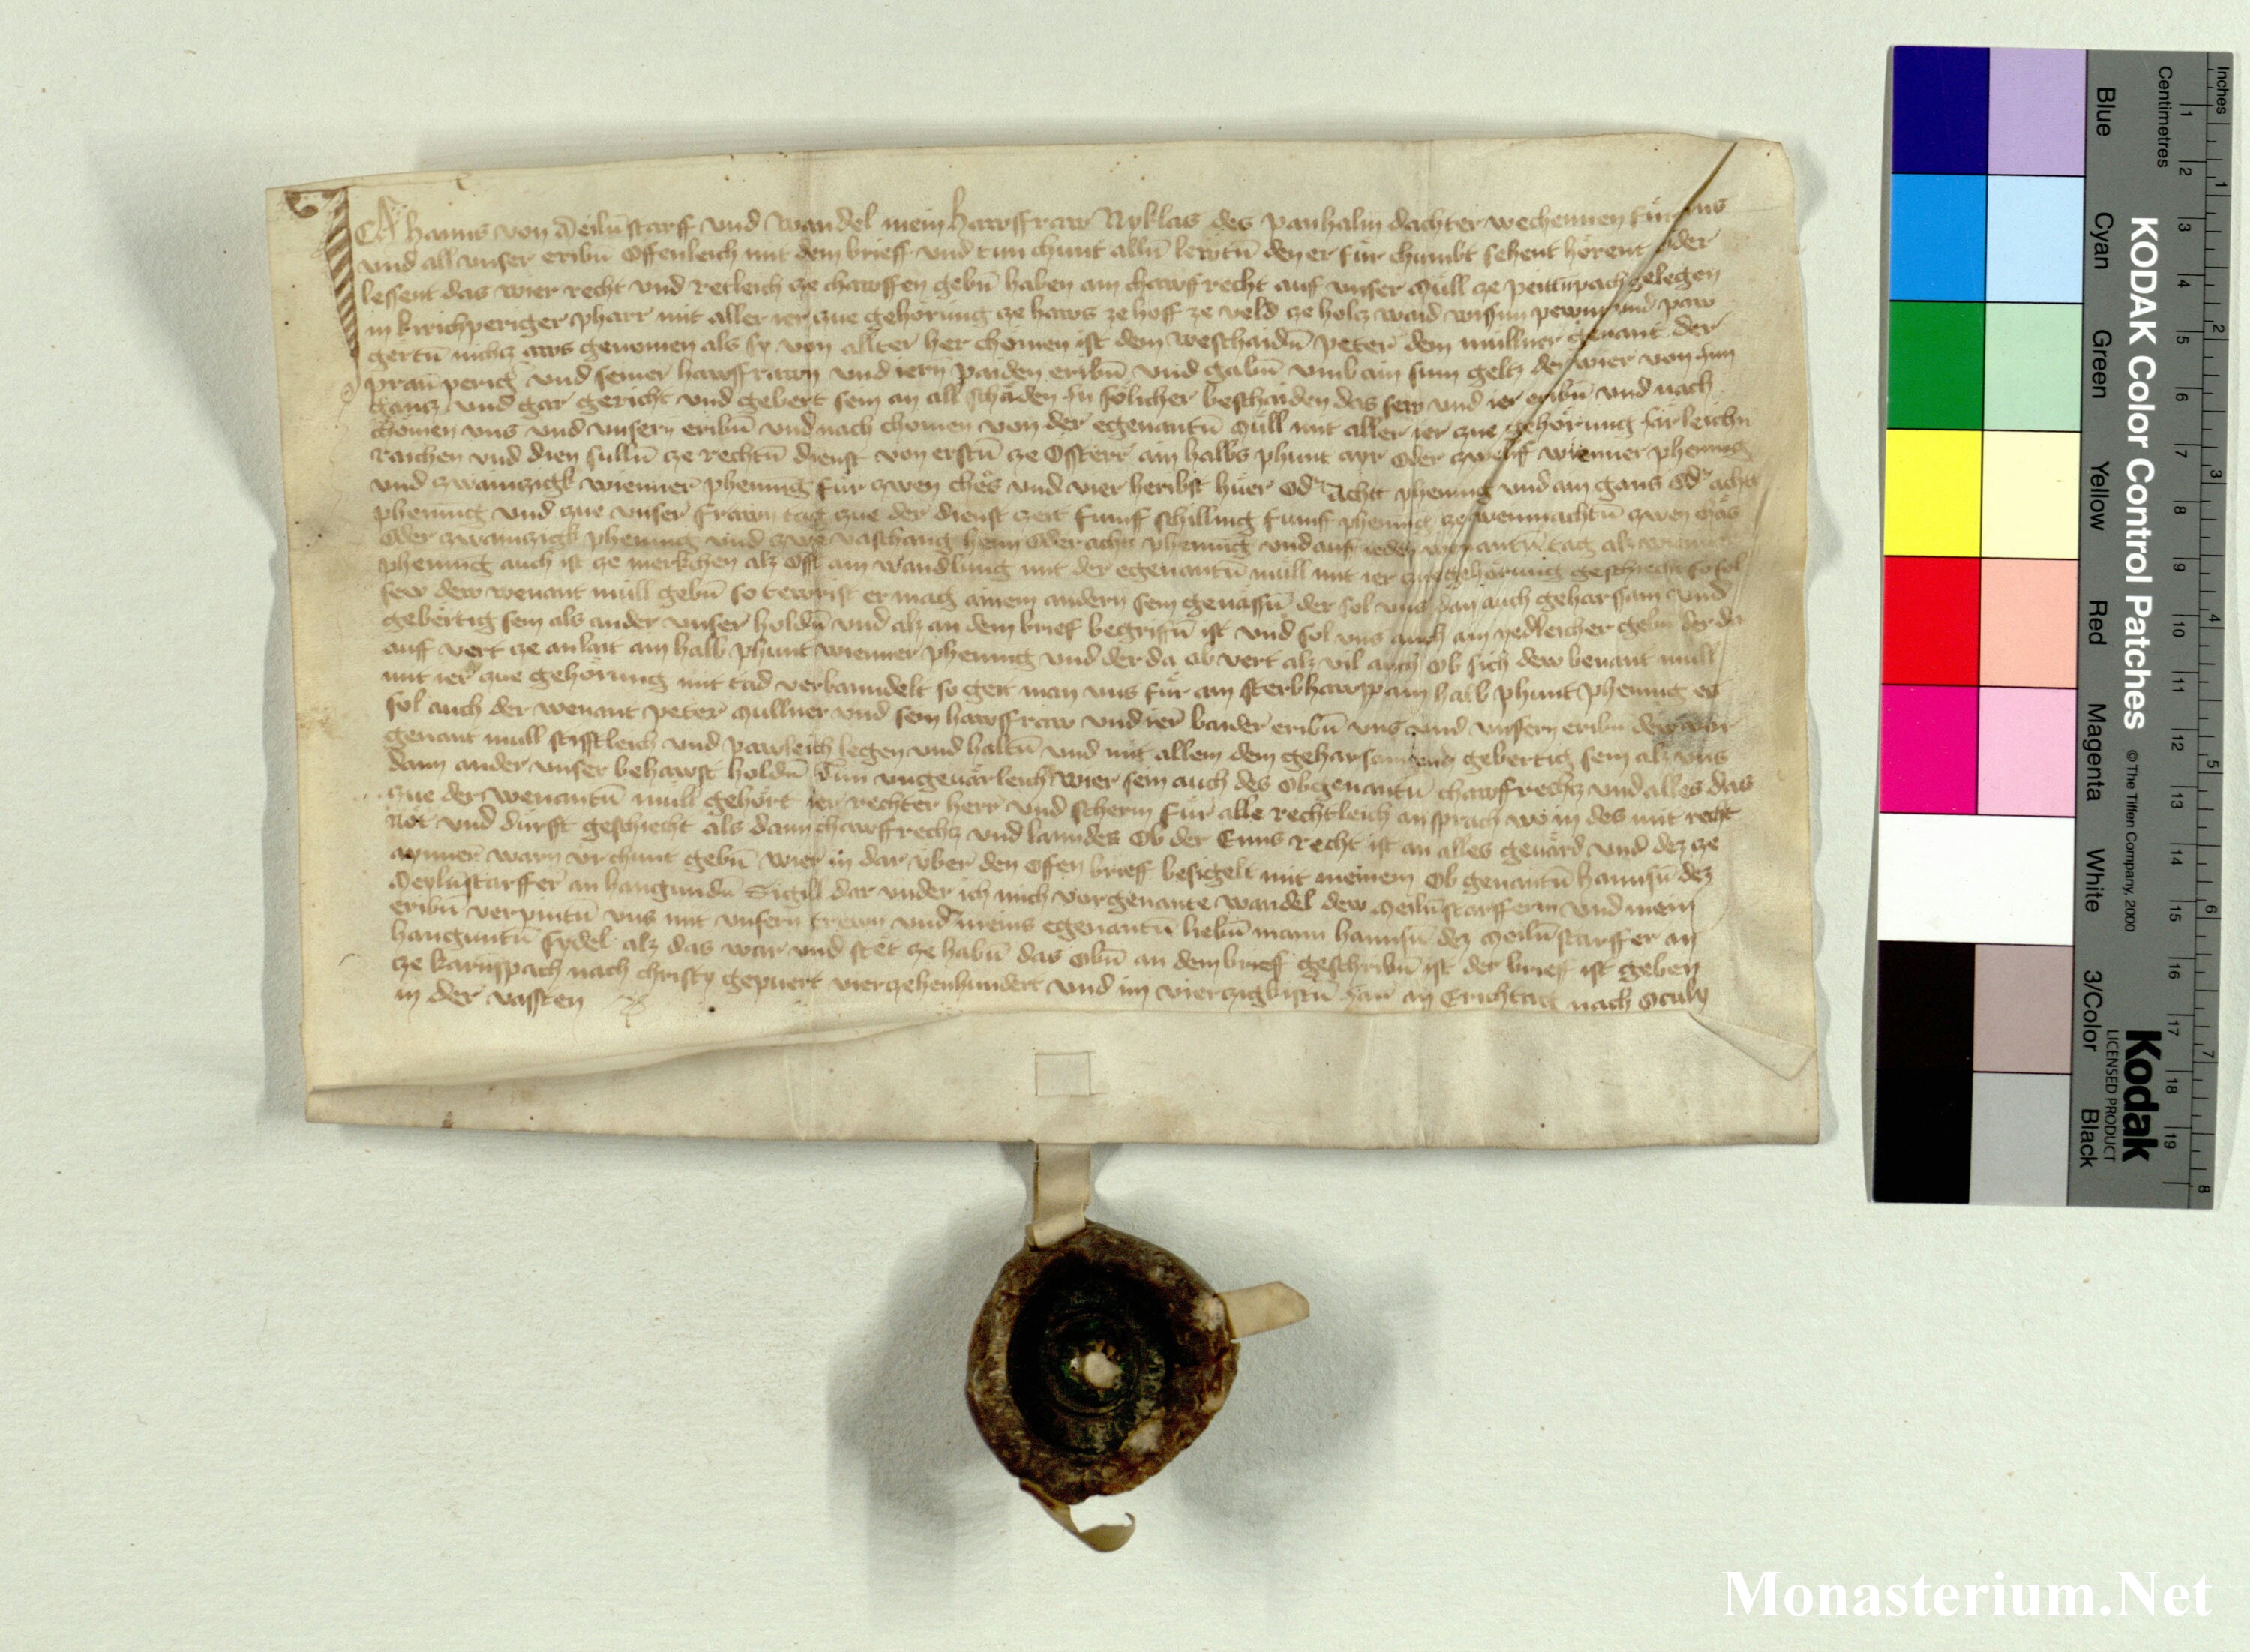 Ich hanns von Meilnstarff und Wandel mein hawsfraw Nyklas des panhalm dachter wechennen für uns
und all unser eribn Offenleich mit dem brieff und tun chunt alln lewtn den er für chumbt sehent hörent oder
lessent das wier recht und retleich ze chawffen gebn haben ain chawfrecht auf unser Müll ze gelegen
in kirichperiger pharr mit aller ier zue gehörung ze haws ze hoff ze veld ze holcz waid wissnn pewnt und paw
gertn nichcz aws genomen als sy von allter her chömen ist dem weschaidn peter dem müllner genant der
prawn perig und seiner hawsfrawn und iern paiden eribn und gabn umb ain sum geltz der wier von
gancz und gar gericht und gebert sein an all schäden sölicher beschaiden das sew und ier eribn und nach
chomen uns und unsern eribn und nach chomen von der egenantn Müll mit aller ier zue gehörung
raichen und dien sulln ze rechtn dienst von erstn ze Ostern ain halbs phunt ayr oder zwelif wienner phening
und zwainzigk wienner phening für zwen ches und vier heribst hüer Oder achtt phening und ain gans Oder acht
phening und zue unser frawn tag zue der dienst zeit fumf schilling fumf phening ze weinnachtn zwen chäs
Oder zwainzigk phening und zwo vaschang henn Oder acht phening und auf ieden wenantn tag
phening auch ist ze merkchen alz Offt ain wandlung mit der egenantn müll mit ier zue gehörung geschiecht so sol
sew dew wenant müll gebn so tewrist er mag ainem andern sein genassn der sol uns dan auch geharsam und
gebertig sein als ander unser holdn und alz an dem brief begrifn ist und sol uns auch ain yedleicher gebn der da
auff vert ze anlait ain halb phunt wienner phening und der da ab vert alz vil auch Ob sich dew benant müll
mit ier zue gehörung mit tad verbanndelt so geit man uns für ain sterbhawpp ain halb phunt phening es
sol auch der wenant peter Mullner und sein hawsfraw und ier baider eribn uns und unsern eribn dew vor
genant mull stifftleich und pawleich legen und haltn und mit allem dem geharsam und gebertig sein alz uns
dann ander unser behawst holdn tun ungeuärleich wier sein auch des Obgenantn chawfrechcz und alles das
zue der wenantn müll gehört ier rechter herr und scherm für alle rechtleich ansprach wo in des mit recht
Not und dürfft geschiecht als dann chawffrechcz und lanndes Ob der Enns recht ist an alles geuärd und dez ze
ayner warn urchunt gebn wier in dar über den Ofen brieff besigelt mit meinem Ob genantn hannsn dez
Meylnstarffer an hangundn Sigill dar under ich mich vorgenante wandel dew Meilnstarfferin und mein
eribn verpintn uns mit unsern trewn und meins egenantn liebn mann hannsn dez Meilnstarffer an
hanguntn sydel alz das war und stet ze habn das Obn an dem brieff geschribn ist der brieff ist geben
ze karnspach nach christy gepuert vierzehenhundert und im vierzigkistn Jar an Erichtag nach Oculy
in der vassten
Inches
Centimetres
KODAK Color Control Patches
© The Tiffen Company, 2000
Kodak
LICENSED PRODUCT
Blue
Cyan
Green
Yellow
Red
Magenta
White
3/Color
Black
1 2 3 4 5 6 7 8 9 10 11 12 13 14 15 16 17 18 19
1 2 3 4 5 6 7 8
Monasterium.Net